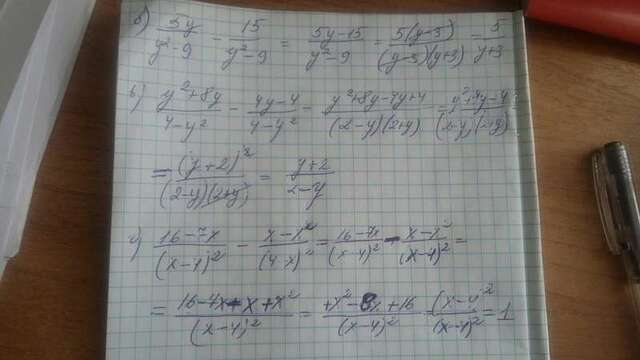 б) 5y/(y²-9) - 15/(y²-9) = (5y-15)/(y²-9) = 5(y-3)/((y-3)(y+3)) = 5/(y+3)
в) (y²+8y)/(4-y²) - (4y-4)/(4-y²) = (y²+8y-4y+4)/((2-y)(2+y)) = (y²+4y+4)/((2-y)(2+y))
= (y+2)²/((2-y)(2+y)) = (y+2)/(2-y)
г) (16-7x)/(x-4)² - (x-x²)/(4-x)² = (16-7x)/(x-4)² - (x-x²)/(x-4)² =
= (16-7x-x+x²)/(x-4)² = (+x²-8x+16)/(x-4)² = (x-4)²/(x-4)² = 1